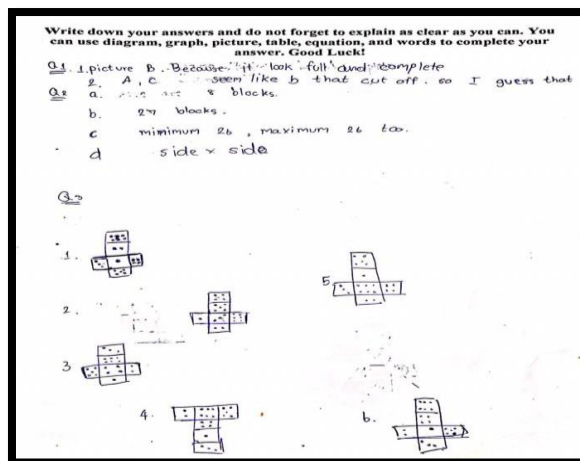 Write down your answers and do not forget to explain as clear as you can. You
can use diagram, graph, picture, table, equation, and words to complete your
answer. Good Luck!
Q1. 1. picture B. Because it look full and complete
2. A, C seem like b that cut off. so I guess that
Q2 a. 8 blocks.
b. 27 blocks.
c mimimum 26, maximum 26 too.
d side x side
Q3
1.
5.
2.
3
4.
6.